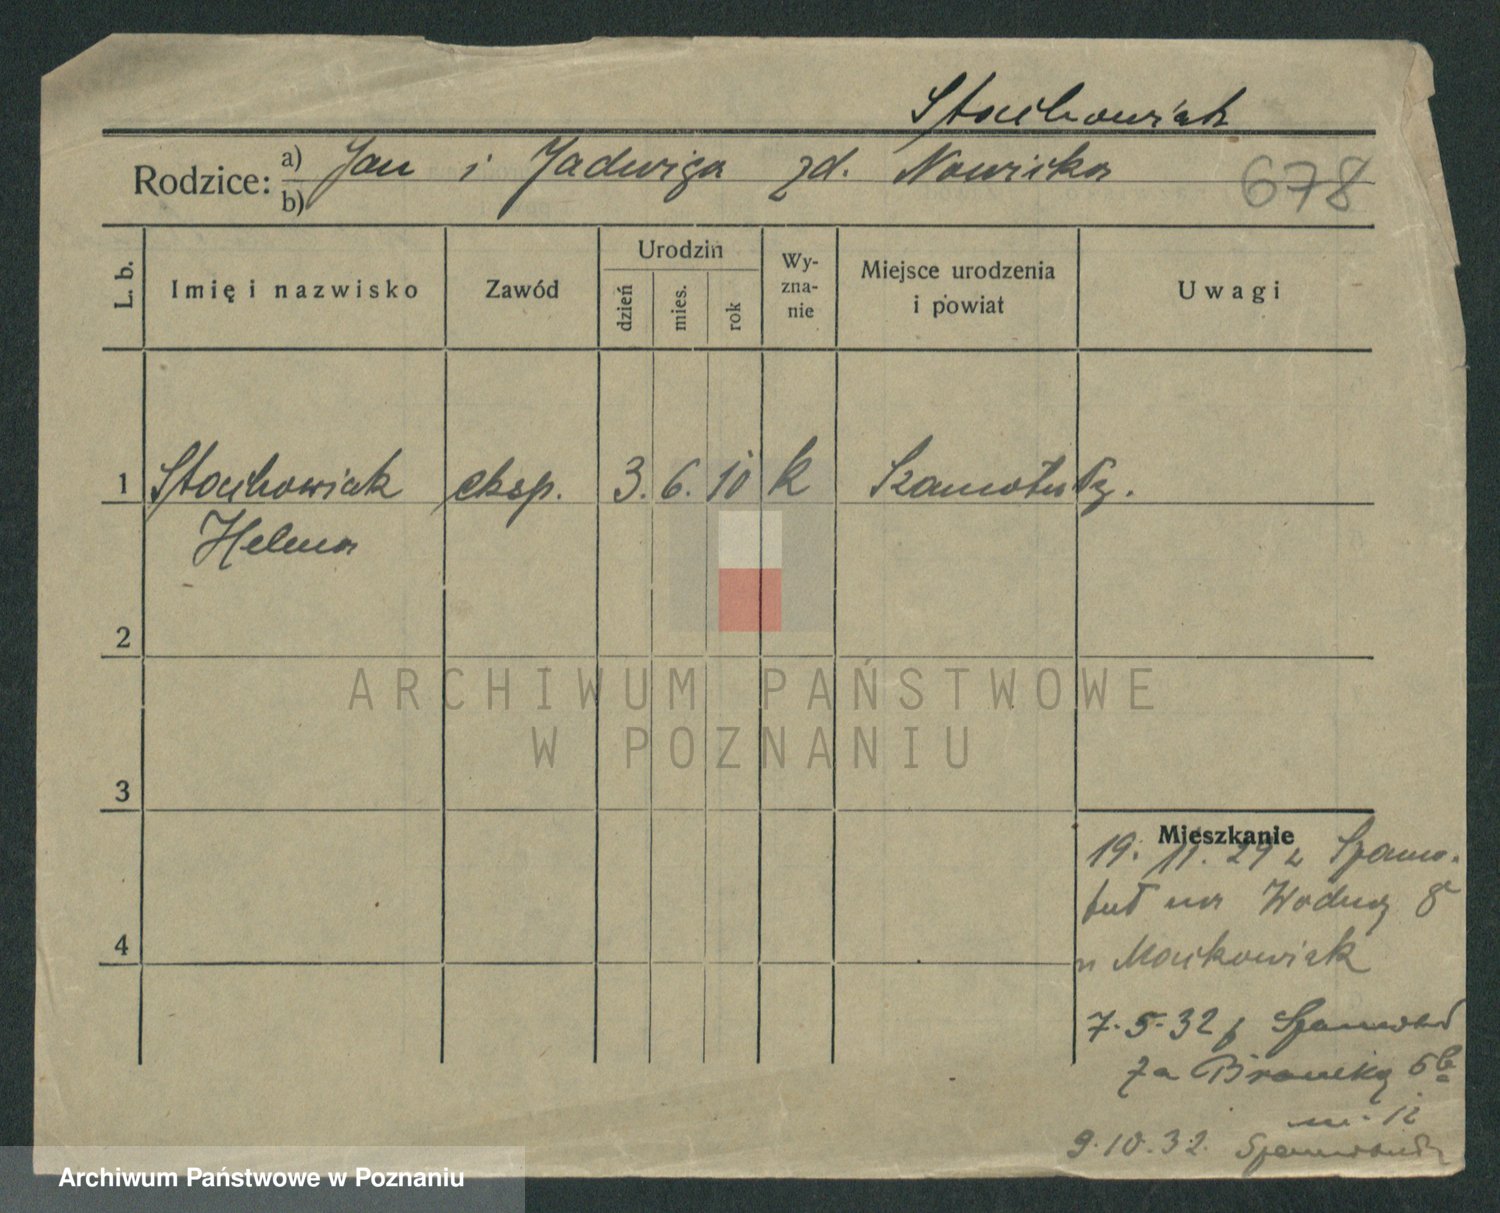 Stachowiak
Rodzice: a) Jan i Jadwiga zd. Nowicka
b)
678
L. b.
Imię i nazwisko
Zawód
Urodzin
dzień
mies.
rok
Wy-
zna-
nie
Miejsce urodzenia
i powiat
Uwagi
1 Stachowiak eksp. 3. 6. 10 k Szamotuły.
Helena
2
3
4
Mieszkanie
19. 11. 29 z Szamo-
tuł na Wodną 8
u Maćkowiak
7.5.32 z Szamotuł
Za Bramką 6b
m. 12
9.10.32. Szamotuły
ARCHIWUM PAŃSTWOWE
W POZNANIU
Archiwum Państwowe w Poznaniu